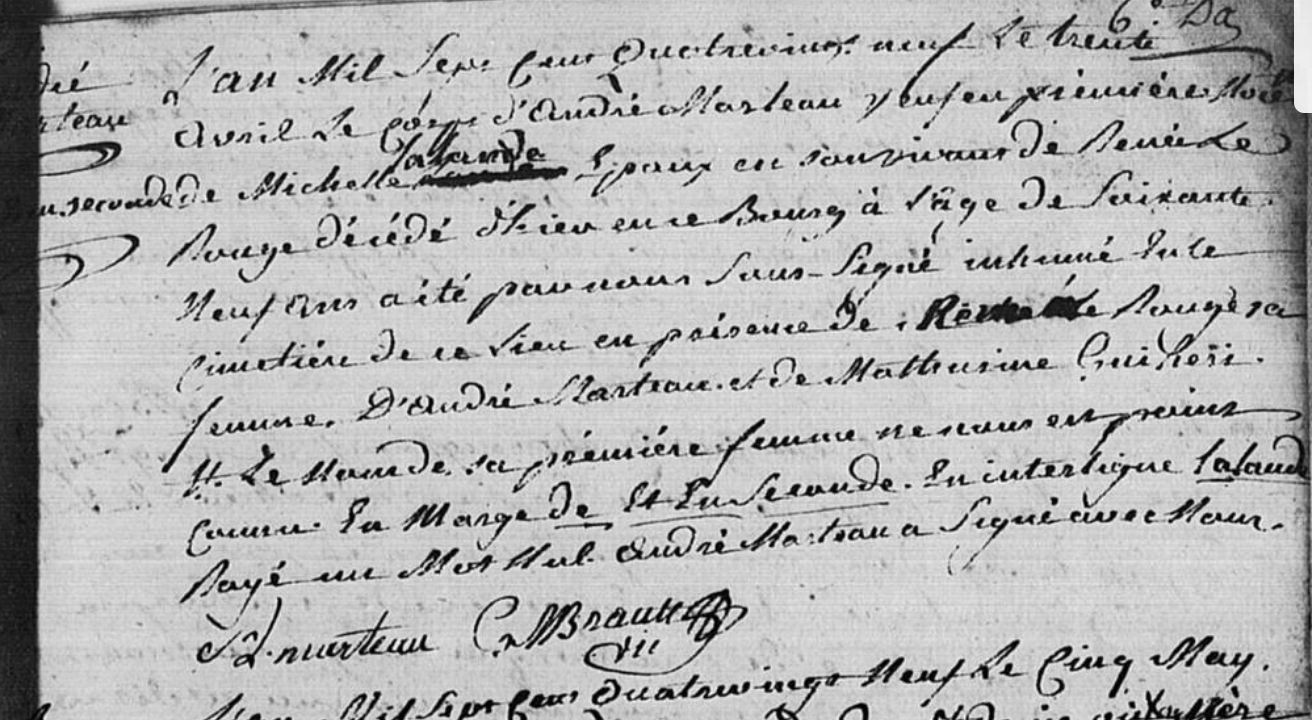 6e Da
L'an Mil Sept Cent Quatrevingt neuf Le trente
dré
avril Le Corps d'André Marteau veuf en première Noce
rteau
en seconde de Michelle lalande Epoux en survivant de Renée Le
Rouge décédé d'hier en ce Bourg à l'âge de Soixante
Neuf ans a été par nous Sous-Signé inhumé En le
Cimetière de ce Lieu en présence de Renée le Rouge sa
femme. D'André Marteau et de Mathurine
Le Nom de sa première femme ne nous est point
Connu. En Marge de Et En Seconde. En interligne laland
Rayé un Mot Nul. André Marteau a Signé avec Nous.
marteau Brault
Mil Sept Cent Quatrevingt Neuf Le Cinq May.